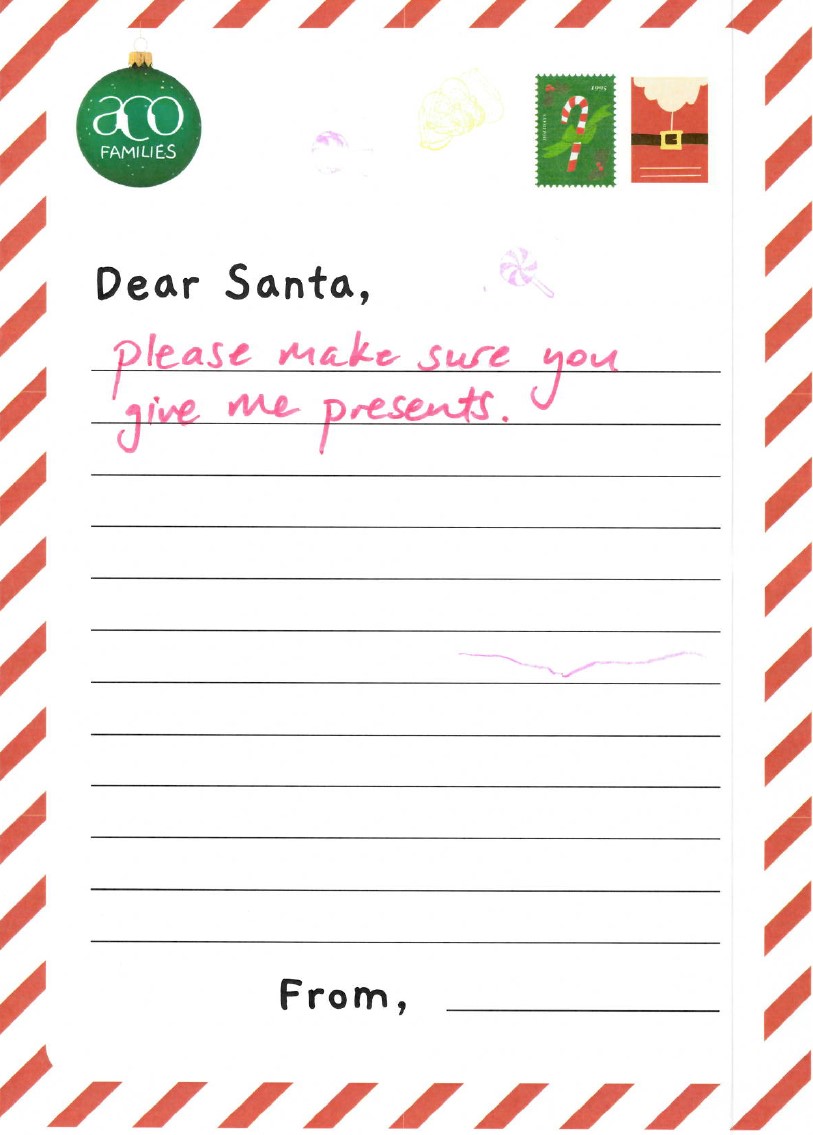 aco
FAMILIES
Dear Santa,
please make sure you
give me presents.
From,